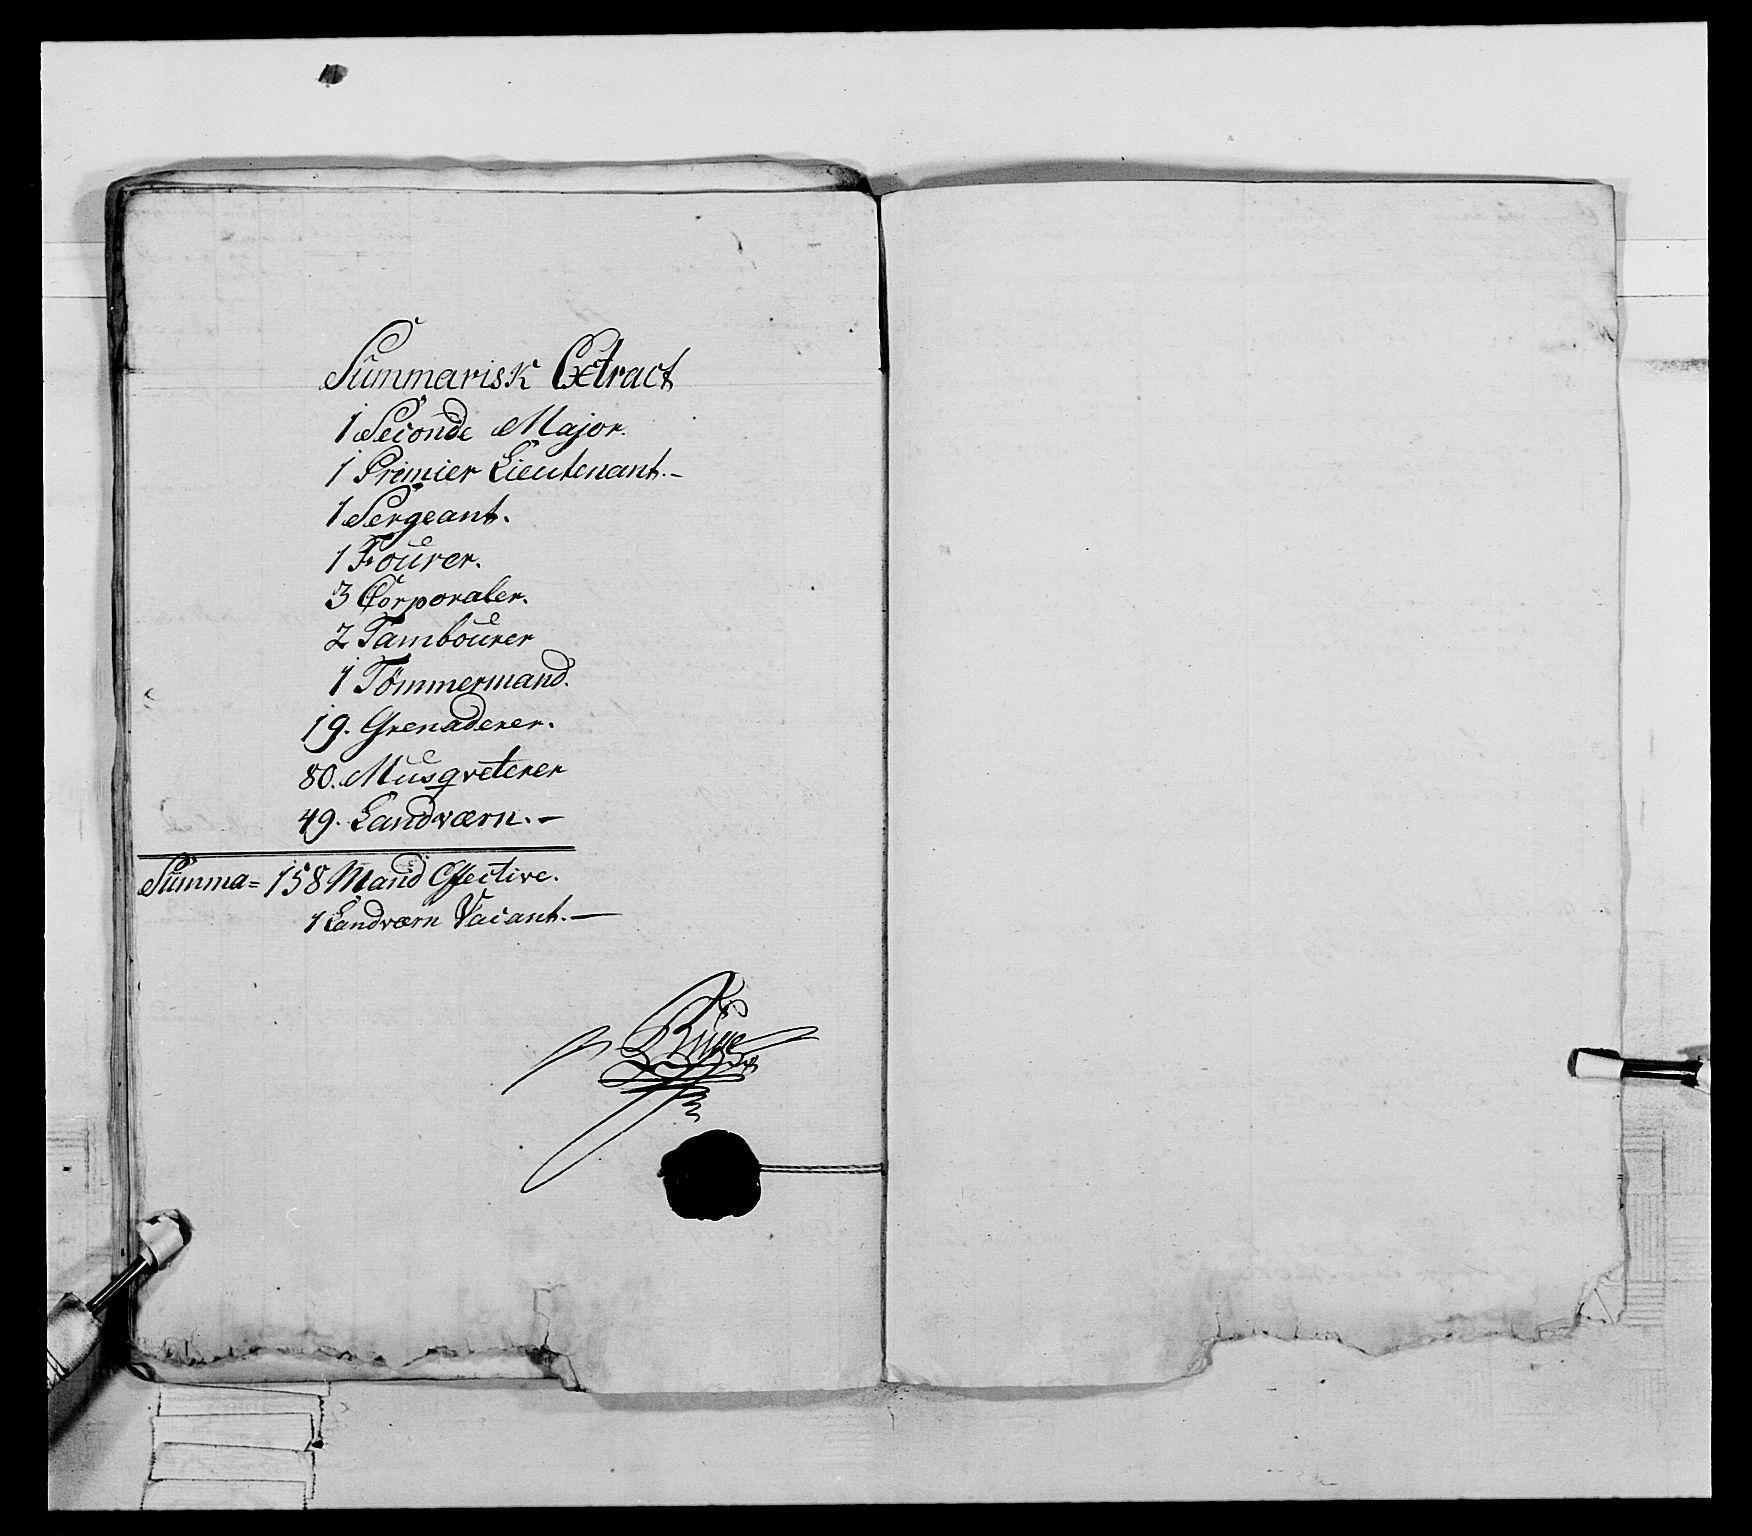 Summarisk Extract
1 Seconde Major.
1 Premier Lieutenant.-
1 Sergeant.
1 Fourer.
3 Corporaler.
2 Tambourer
1 Tømmermand.
19. Grenaderer.
80. Musqveterer
49. Landværn.-
Summa= 158 Mand Effective.
1 Landværn Vacant.-